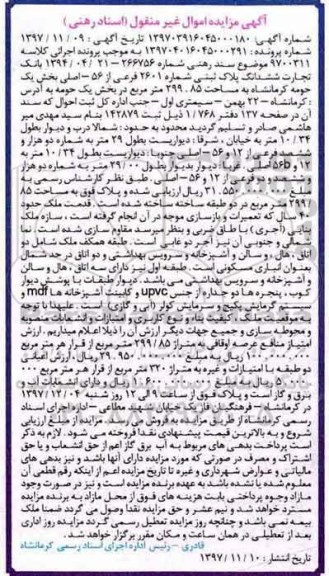 آگهی مزایده اموال غیر منقول (اسناد رهنی)
شماره آگهی: ۱۳۹۷۰۳۹۱۶۰۴۵۰۰۰۱۸۰ تاریخ آگهی: ۱۳۹۷/۱۱/۰۹
شماره پرونده: ۱۳۹۷۰۴۰۱۶۰۴۵۰۰۰۲۹۱ به موجب پرونده اجرائی کلاسه
۹۷۰۰۳۱۱ موضوع سند رهنی شماره ۲۶۶۷۵۶ - ۱۳۹۴/۰۴/۲۱ بانک
تجارت ششدانگ پلاک ثبتی شماره ۲۶۰۱ فرعی از ۵۶ - اصلی بخش یک
حومه کرمانشاه به مساحت ۲۹۹.۸۵ متر مربع در بخش یک حومه به آدرس
: کرمانشاه - ۲۲ بهمن - سیمتری اول - جنب اداره کل ثبت احوال که سند
آن در صفحه ۱۳۷ دفتر ۱/۷۶۸ ذیل ثبت ۱۴۲۸۷۹ بنام سید مهدی میر
هاشمی صادر و تسلیم گردید محدود به حدود: شمالا درب و دیوار بطول
۱۰/۳۴ متر به خیابان. شرقا: دیواریست بطول ۲۹ متر به شماره دو هزار و
ششصد فرعی از ۵۶ - اصلی جنوبا: دیواریست بطول ۱۰/۳۴ متر به
دو هزار و ششصد و دو فرعی از ۱۲ و ۵۶ - اصلی طبق نظر کارشناس رسمی به
مبلغ ریال ارزیابی شده و پلاک فوق به مساحت ۸۵
/۲۹۹ متر مربع در دو طبقه ساخته شده است. قدمت ملک حدود
۴۰ سال که تعمیرات و بازسازی موجه در آن انجام گرفته است، سازه ملک
بنایی (آجری) با طاق ضربی و بنظر میرسد مقاوم سازی شده است. نما
شمالی و جنوبی آن نیز آجر دو غابی است. طبقه همکف ملک شامل دو
اتاق، هال و سالن و آشپزخانه و سرویس بهداشتی و دو اتاق در جد شمال
بعنوان انباری مسکونی است. طبقه اول نیز دارای سه اتاق، هال و سالن
و آشپزخانه و سرویس بهداشتی می باشد. دیوار طبقات با پوشش دیوار
کوب، پنجره ها دو جداره از جنس upvc و کابینت آشپزخانه ها mdf و
سیستم گرمایش پکیج و سرمایش کولر آبی و گازی است. علیهذا با توجه
به موقعیت ملک، کیفیت بنا و نوع کاربری و امتیازات و انشعابات منصوبه
و محوطه سازی و جمیع جهات دیگر ارزش آن را ذیلا اعلام میداریم. ارزش
امتیاز منافع عرصه اوقافی به متراژ ۲۹۹/۸۵ متر مربع از قرار هر متر مربع
ریال به مبلغ ریال ارزش اعیانی
دو طبقه با امتیازات و غیره به متراژ ۳۲۰ متر مربع از قرار هر متر مربع
ریال به مبلغ ریال و دارای انشعابات آب و
برق و گاز است و پلاک فوق از ساعت ۹ الی ۱۲ روز شنبه ۱۳۹۷/۱۲/۰۴
در کرمانشاه - فرهنگیان فاز یک خیابان شهید مطاعی - اداره اجرای اسناد
رسمی کرمانشاه از طریق مزایده به فروش می رسد. مزایده از مبلغ ارزیابی
شروع و به بالاترین قیمت پیشنهادی نقدا فروخته می شود. لازم به ذکر
است پرداخت بدهی های مربوط به آب، برق، گاز اعم از حق انشعاب و یا حق
اشتراک و مصرف در صورتی که مورد مزایده دارای آنها باشد و نیز بدهی های
مالیاتی و عوارض شهرداری و غیره تا تاریخ مزایده اعم از اینکه رقم قطعی آن
معلوم شده یا نشده باشد به عهده برنده مزایده است و نیز در صورت وجود
مازاد وجوه پرداختی بابت هزینه های فوق از محل مازاد به برنده مزایده
مسترد خواهد شد و نیم عشر و حق مزایده نقدا وصول می گردد ضمنا ملک
بیمه نمی باشد و چنانچه روز مزایده تعطیل رسمی گردد مزایده روز اداری
بعد از تعطیلی در همان ساعت و مکان مقرر برگزار خواهد شد.
قادری - رئیس اداره اجرای اسناد رسمی کرمانشاه
تاریخ انتشار: ۱۳۹۷/۱۱/۱۰